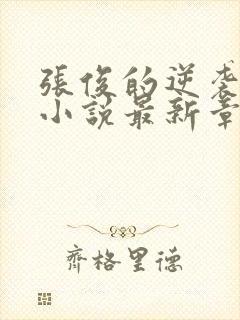 張俊的逆袭
小説最新章
齊格里德